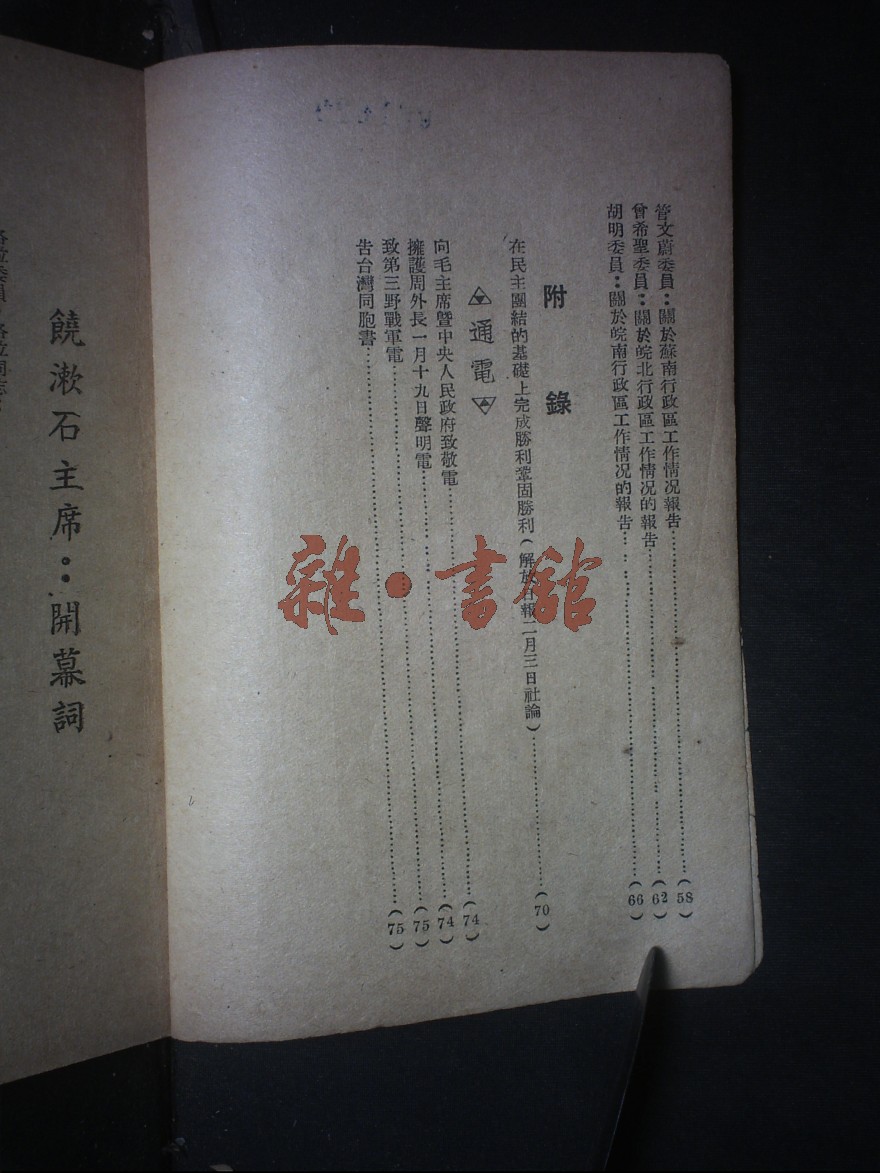 管文蔚委員：關於蘇南行政區工作情况報告……(58)
曾希聖委員：關於皖北行政區工作情况的報告……(62)
胡明委員：關於皖南行政區工作情况的報告……(66)
附錄
在民主團結的基礎上完成勝利鞏固勝利(解放日報二月三日社論)……(70)
通電
向毛主席暨中央人民政府致敬電……(74)
擁護周外長一月十九日聲明電……(74)
致第三野戰軍電……(75)
告台灣同胞書……(75)
饒漱石主席：開幕詞
雜·書館